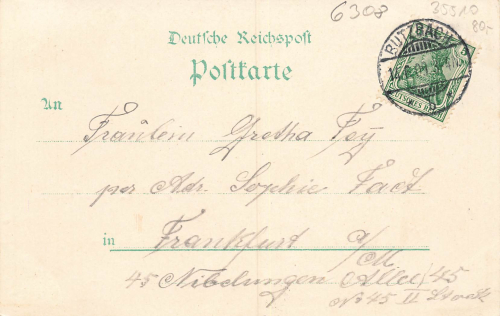 6308
35510
80-
Deutsche Reichspost
Postkarte
BUTZBACH
An
Fräulein Gretha Fey
per Adr. Sophie Fact
in Frankfurt a/M
45 Nibelungen Allee 45
No 45 II Stock